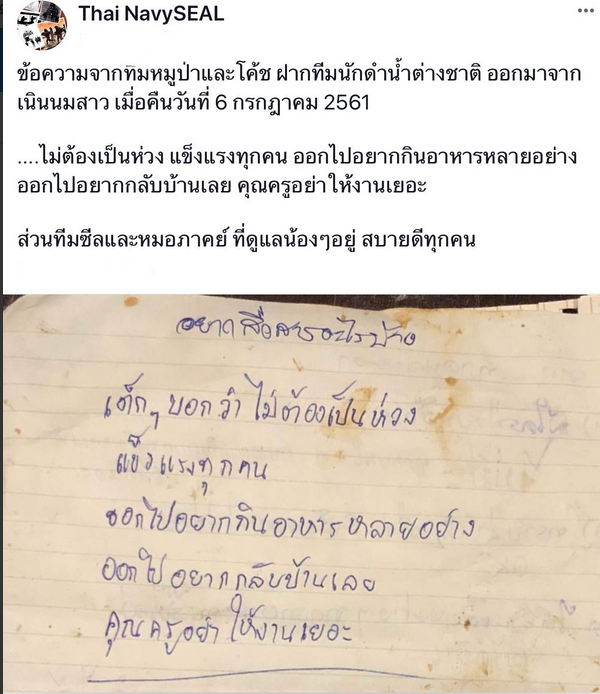 Thai NavySEAL
ข้อความจากทีมหมูป่าและโค้ช ฝากทีมนักดำน้ำต่างชาติ ออกมาจาก
เนินนมสาว เมื่อคืนวันที่ 6 กรกฎาคม 2561
....ไม่ต้องเป็นห่วง แข็งแรงทุกคน ออกไปอยากกินอาหารหลายอย่าง
ออกไปอยากกลับบ้านเลย คุณครูอย่าให้งานเยอะ
ส่วนทีมซีลและหมอภาคย์ ที่ดูแลน้องๆอยู่ สบายดีทุกคน
อยากสื่อสารอะไรบ้าง
เด็กๆ บอกว่า ไม่ต้องเป็นห่วง
แข็งแรงทุกคน
ออกไปอยากกินอาหารหลายอย่าง
ออกไปอยากกลับบ้านเลย
คุณครูอย่าให้งานเยอะ